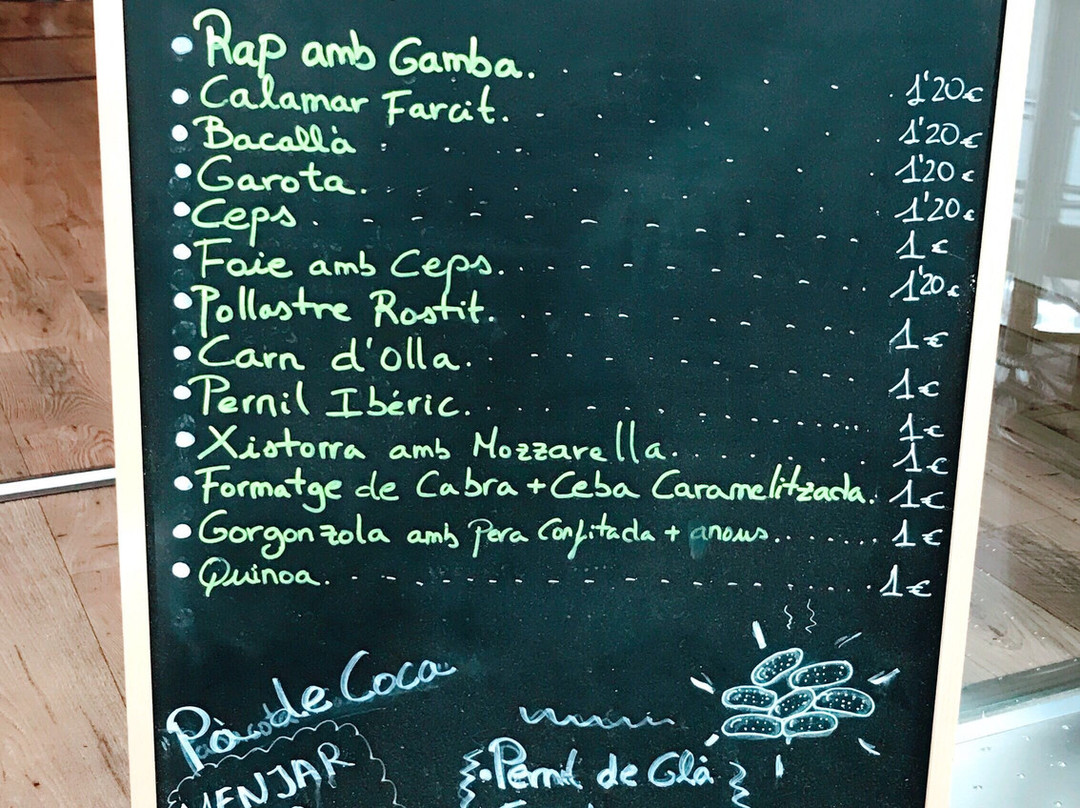 Rap amb Gamba. 1'20€
Calamar Farcit. 1'20€
Bacallà 1'20€
Garota. 1'20€
Ceps. 1€
Foie amb Ceps. 1'20€
Pollastre Rostit. 1€
Carn d'olla. 1€
Pernil Ibéric. 1€
Xistorra amb Mozzarella. 1€
Formatge de Cabra + Ceba Caramelitzada. 1€
Gorgonzola amb Pera Confitada + anous. 1€
Quinoa. 1€
de Coca
MENJAR
Pernil de Glà